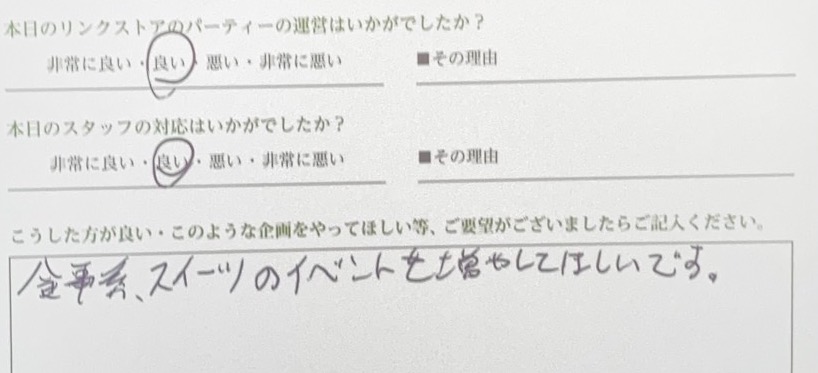 本日のリンクストアのパーティーの運営はいかがでしたか？
非常に良い・良い・悪い・非常に悪い ■その理由
本日のスタッフの対応はいかがでしたか？
非常に良い・良い・悪い・非常に悪い ■その理由
こうした方が良い・このような企画をやってほしい等、ご要望がございましたらご記入ください。
食事系、スイーツのイベントを増やしてほしいです。